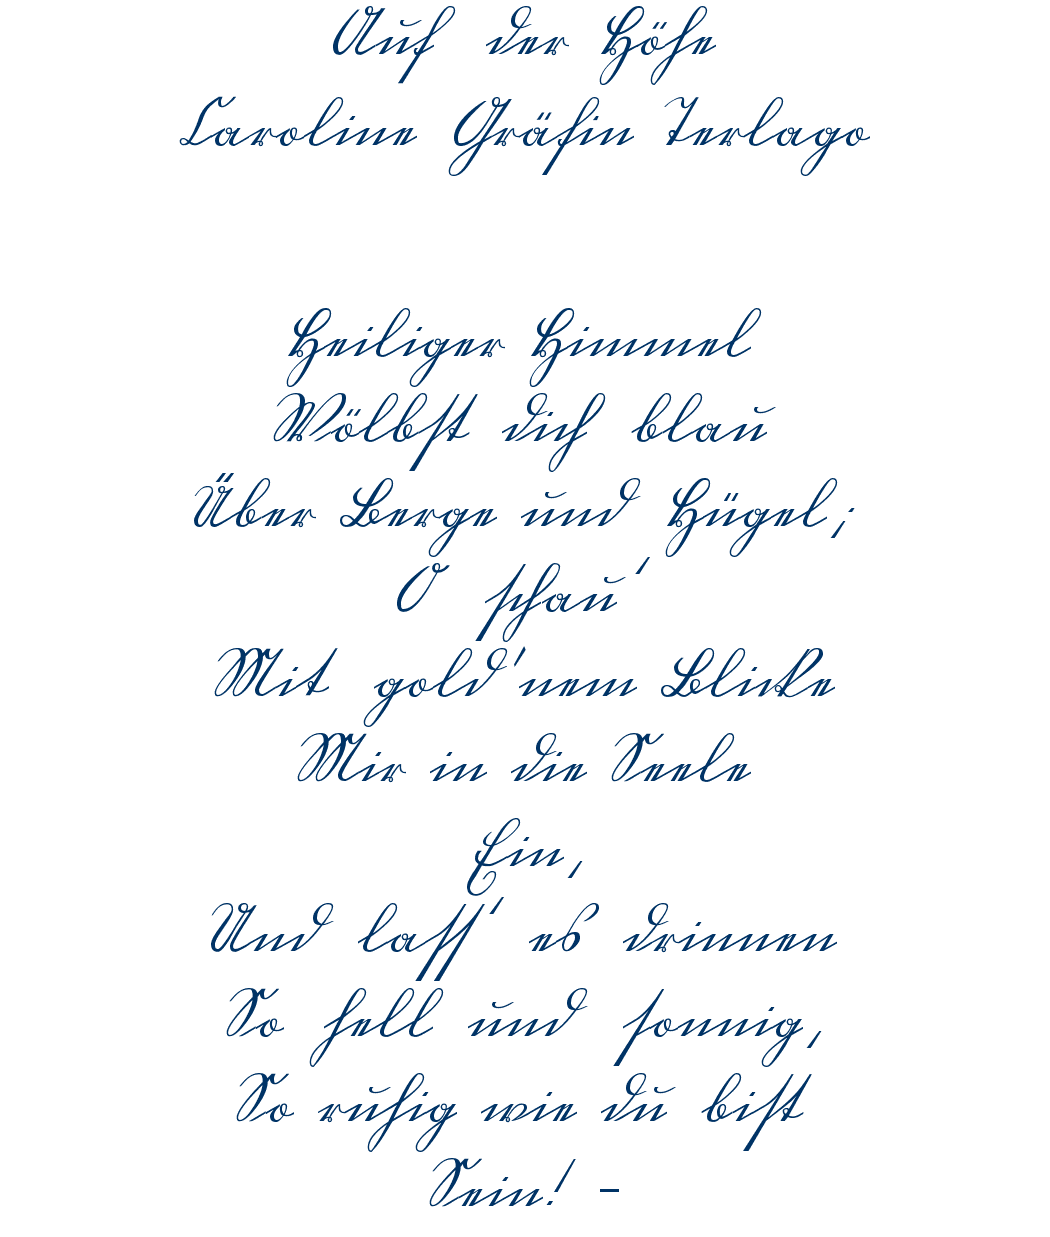 Auf der Höhe
Caroline Gräfin Terlago
Heiliger Himmel
Wölbst dich blau
Über Berge und Hügel;
O schau'
Mit gold'nem Blicke
Mir in die Seele
Ein,
Und lass' es drinnen
So hell und sonnig,
So ruhig wie du bist
Sein! -